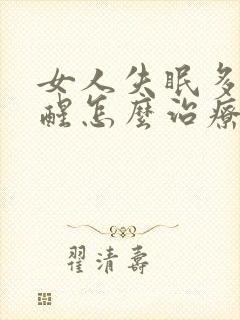 女人失眠多
醒怎麽治療
翟清壽